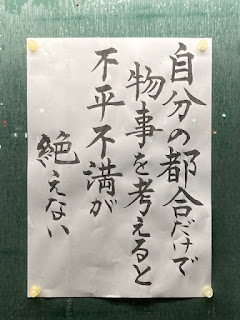 自分の都合だけで
物事を考えると
不平不満が
絶えない